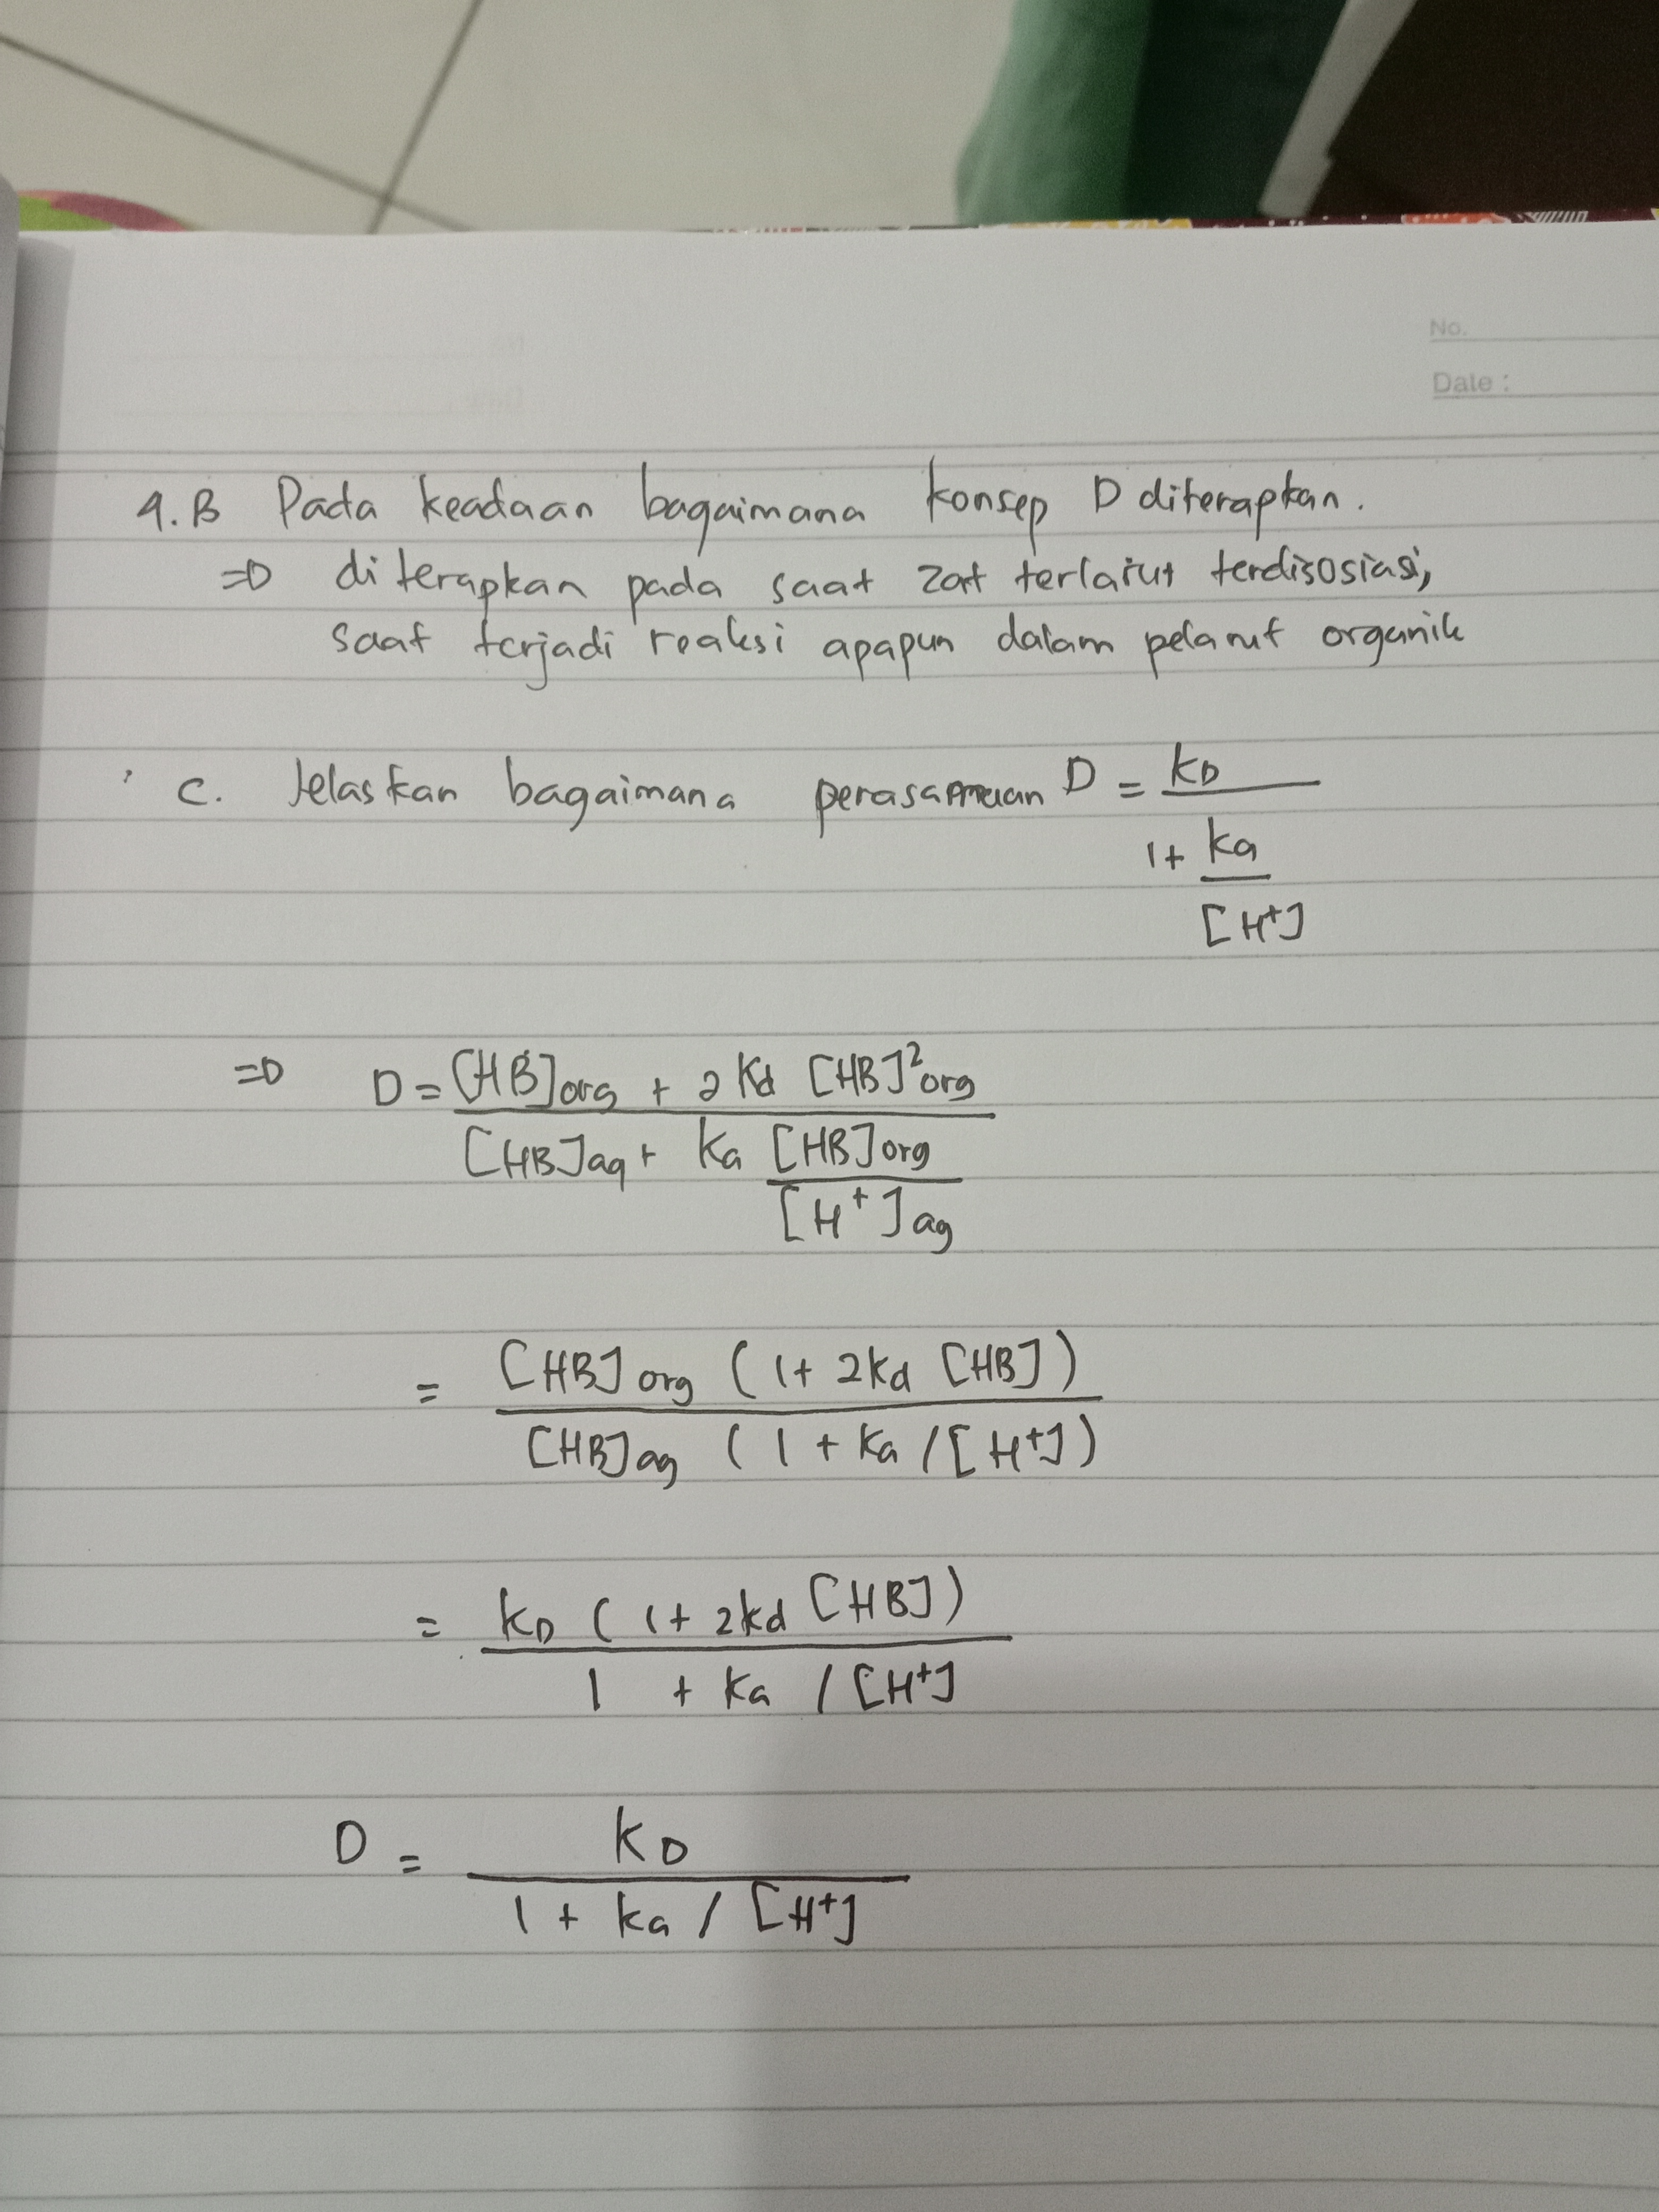 No.
Date :
4.B Pada keadaan bagaimana konsep D diterapkan.
=D diterapkan pada saat zat terlarut terdisosiasi,
saat terjadi reaksi apapun dalam pelarut organik
C. Jelaskan bagaimana perasamaan D = KD
1+ Ka
[H+]
=D D = [HB]org + 2 Kd [HB]²org
[HB]aq + Ka [HB]org
[H+]aq
= [HB]org (1+ 2Kd [HB])
[HB]aq (1 + Ka /[H+])
= KD (1+ 2Kd [HB])
1 + Ka / [H+]
D = KD
1 + Ka / [H+]